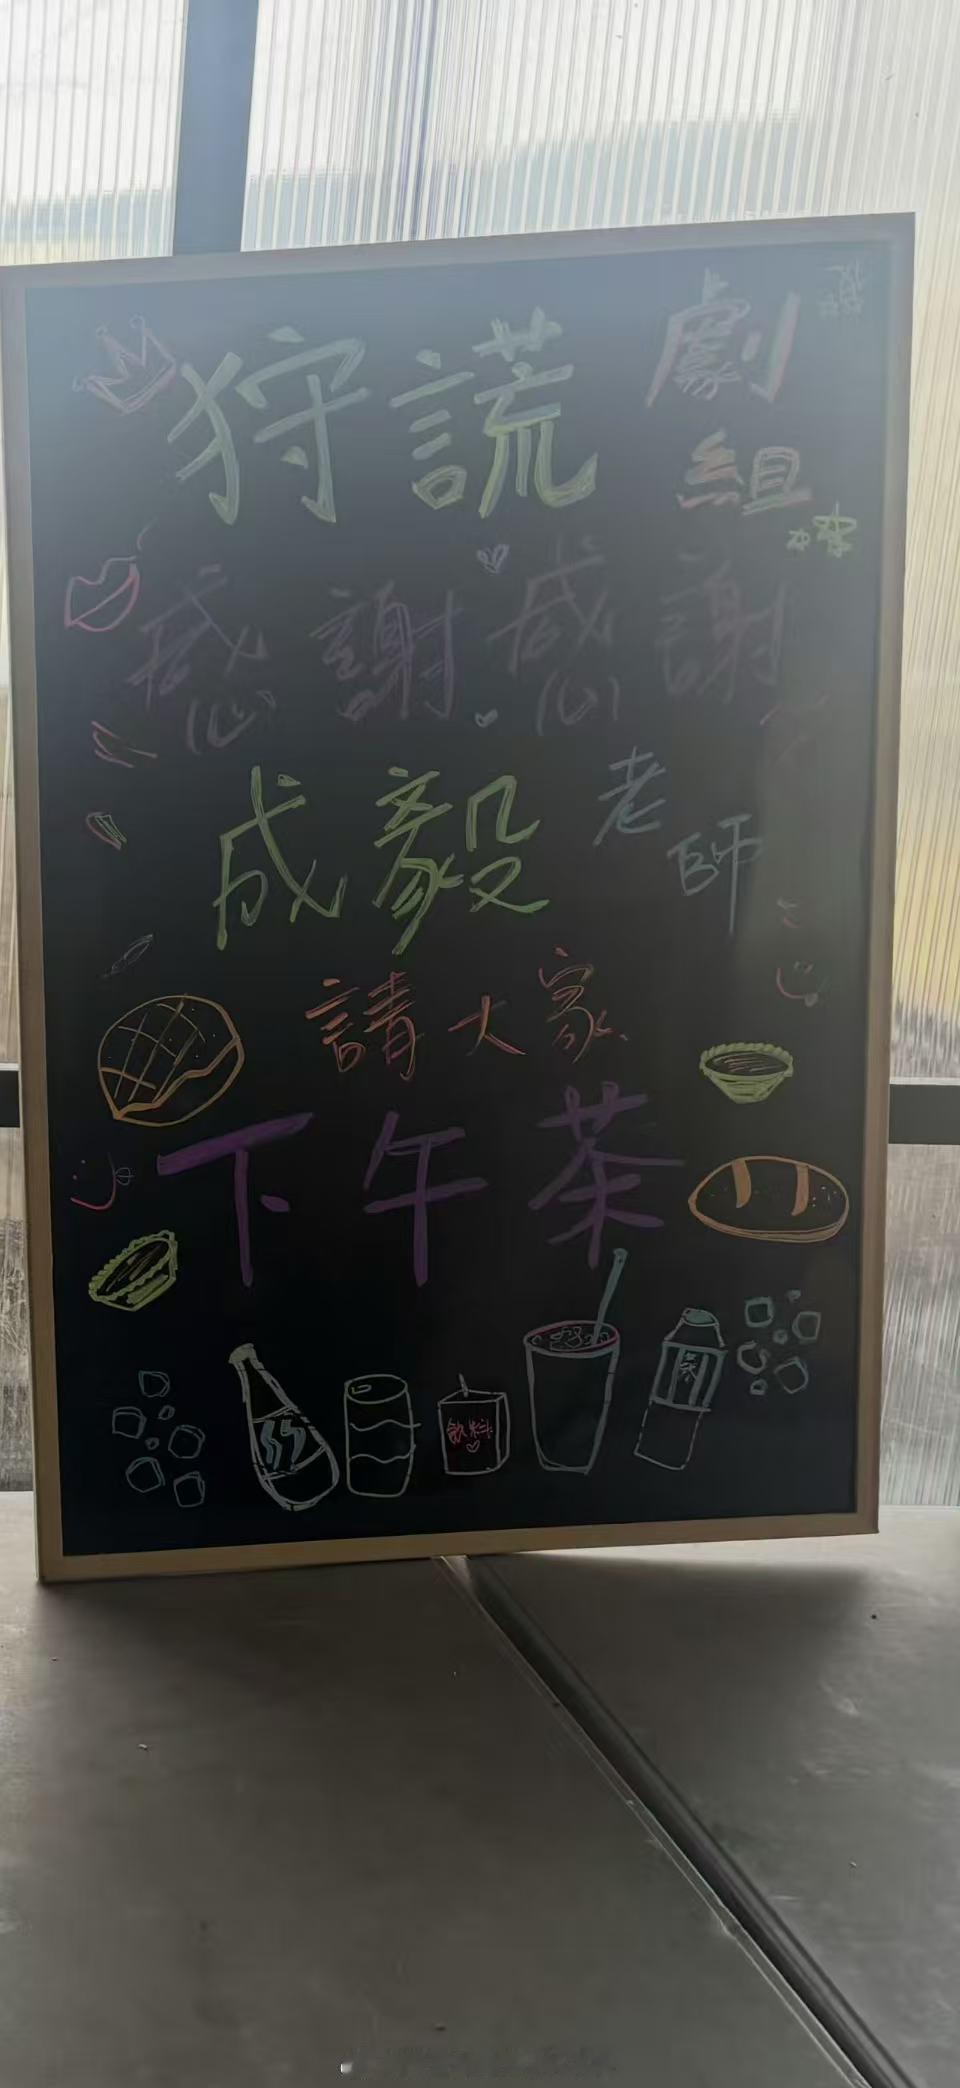 狩謊劇組
感謝感謝
成毅老師
請大家
下午茶
飲料
茶